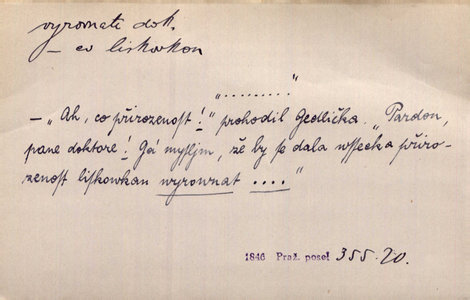 vyrovnati dok.
— co liskovkou
„.........“
— „Ah, co přirozenost!“ prohodil Jedlička. „Pardon,
pane doktore! Já mysljm, že by se dala wssecka přiro-
zenost liskowkau wyrownat ....“
1846 Praž. posel 355.20.